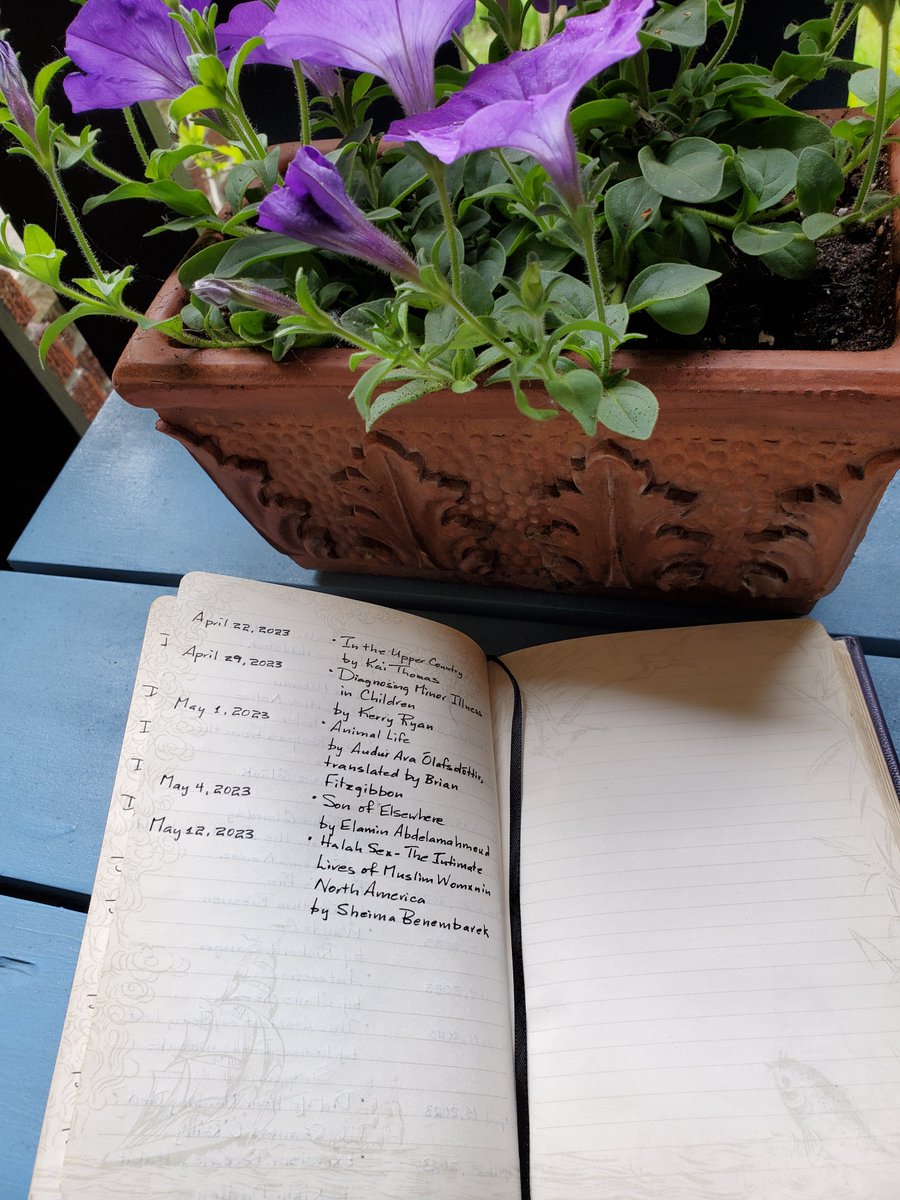 April 22, 2023
• In the Upper Country
by Kai Thomas
April 29, 2023
• Diagnosing Minor Illness
in Children
by Kerry Ryan
May 1, 2023
• Animal Life
by Audur Ava Ólafsdóttir,
translated by Brian
Fitzgibbon
May 4, 2023
• Son of Elsewhere
by Elamin Abdelamahmoud
May 12, 2023
• Halah Sex - The Intimate
Lives of Muslim Womxn in
North America
by Sheima Benembarek